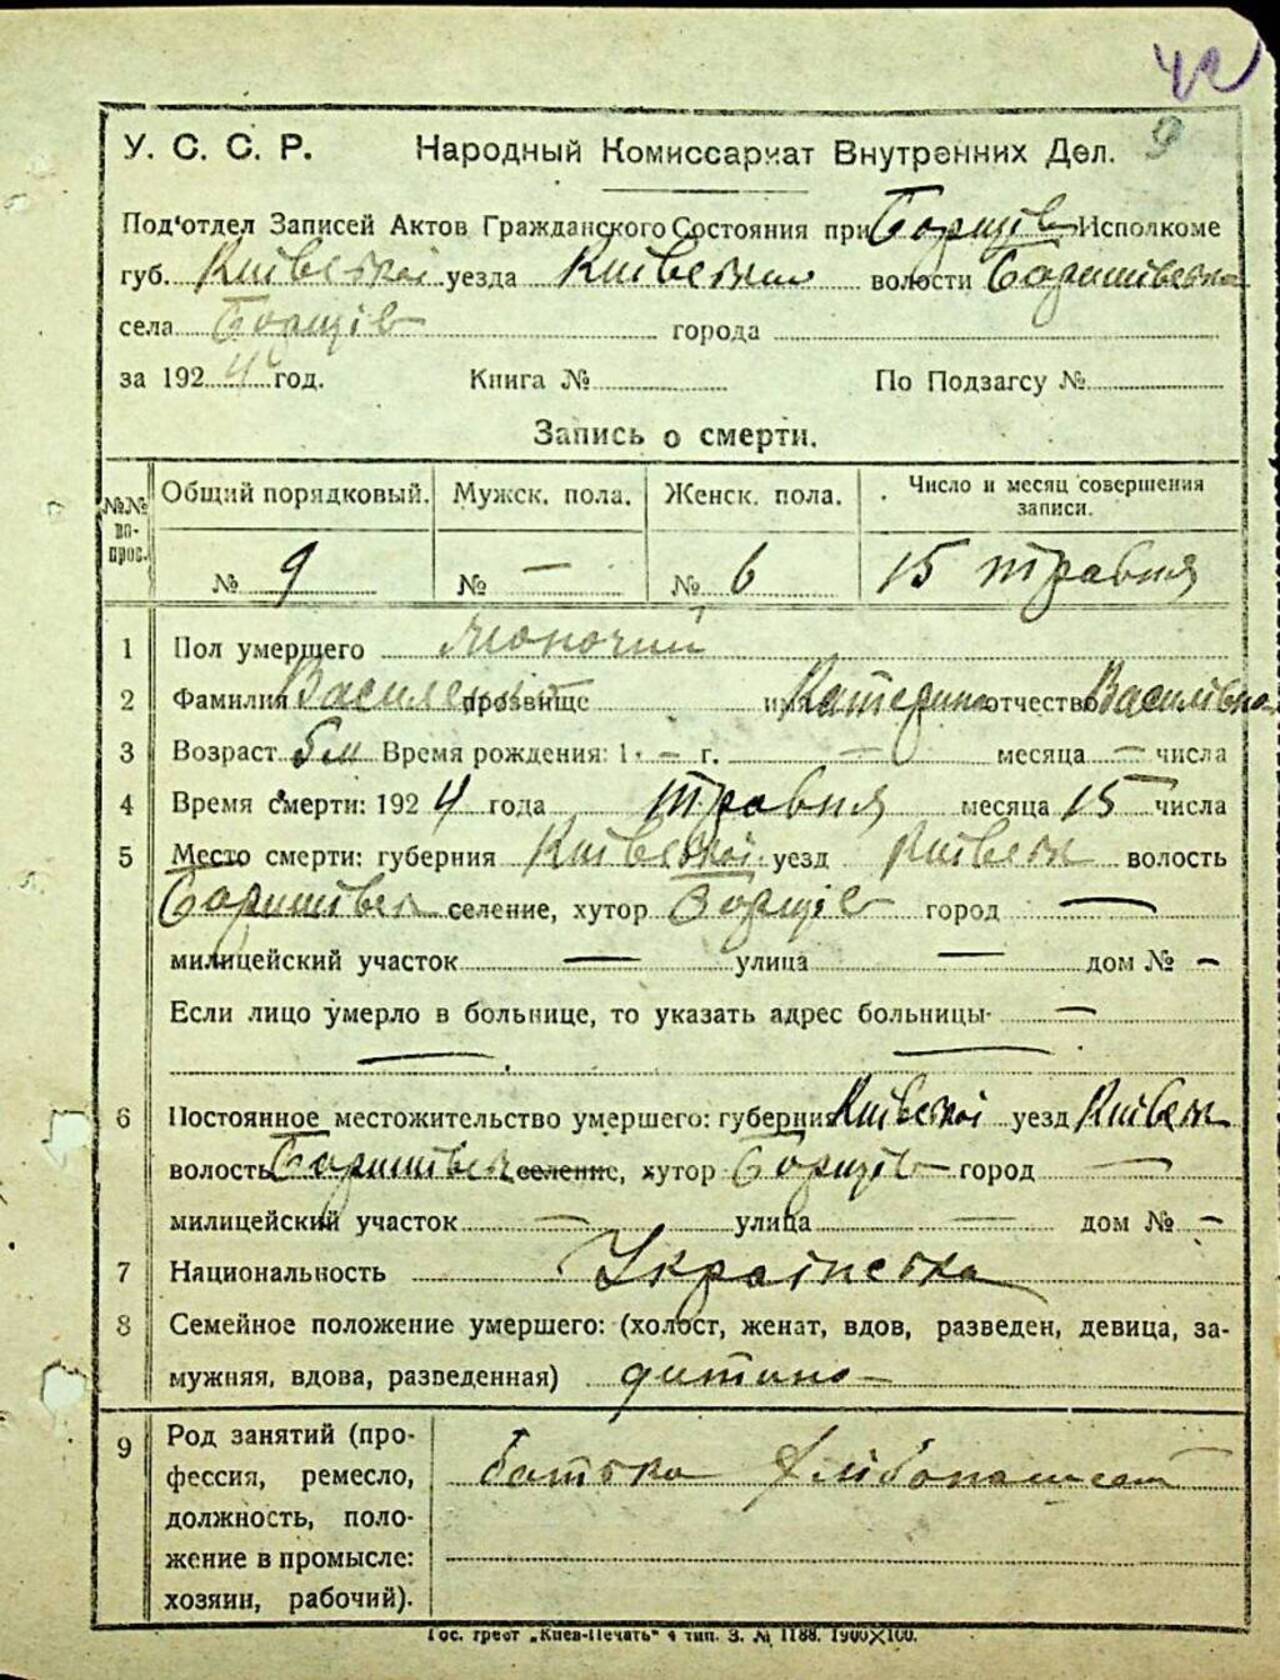 42
9
У. С. С. Р. Народный Комиссариат Внутренних Дел.
Под'отдел Записей Актов Гражданского Состояния при Борщів Исполкоме
губ. Київської уезда Київський волости Баришівська
села Борщів города
за 1924 год. Книга № По Подзагсу №
Запись о смерти.
№№ во- прос. Общий порядковый. Мужск. пола. Женск. пола. Число и месяц совершения записи.
№ 9 № — № 6 15 травня
1 Пол умершего жіночий
2 Фамилия прозвище имя Катерина отчество Василівна
3 Возраст 5 м Время рождения: 1 - — г. — месяца — числа
4 Время смерти: 1924 года травня месяца 15 числа
5 Место смерти: губерния Київської уезд Київськ волость
Баришівськ селение, хутор Борщів город —
милицейский участок — улица — дом № —
Если лицо умерло в больнице, то указать адрес больницы —
— —
6 Постоянное местожительство умершего: губерния Київської уезд Київськ
волость Баришівськ селение, хутор Борщів город —
милицейский участок — улица — дом № —
7 Национальность Українська
8 Семейное положение умершего: (холост, женат, вдов, разведен, девица, за-
мужняя, вдова, разведенная) дитина
9 Род занятий (про-
фессия, ремесло,
должность, поло-
жение в промысле:
хозяин, рабочий).
батько хлібопашест
Гос. трест „Киев-Печать“ 4 тип. З. № 1188. 1900×100.